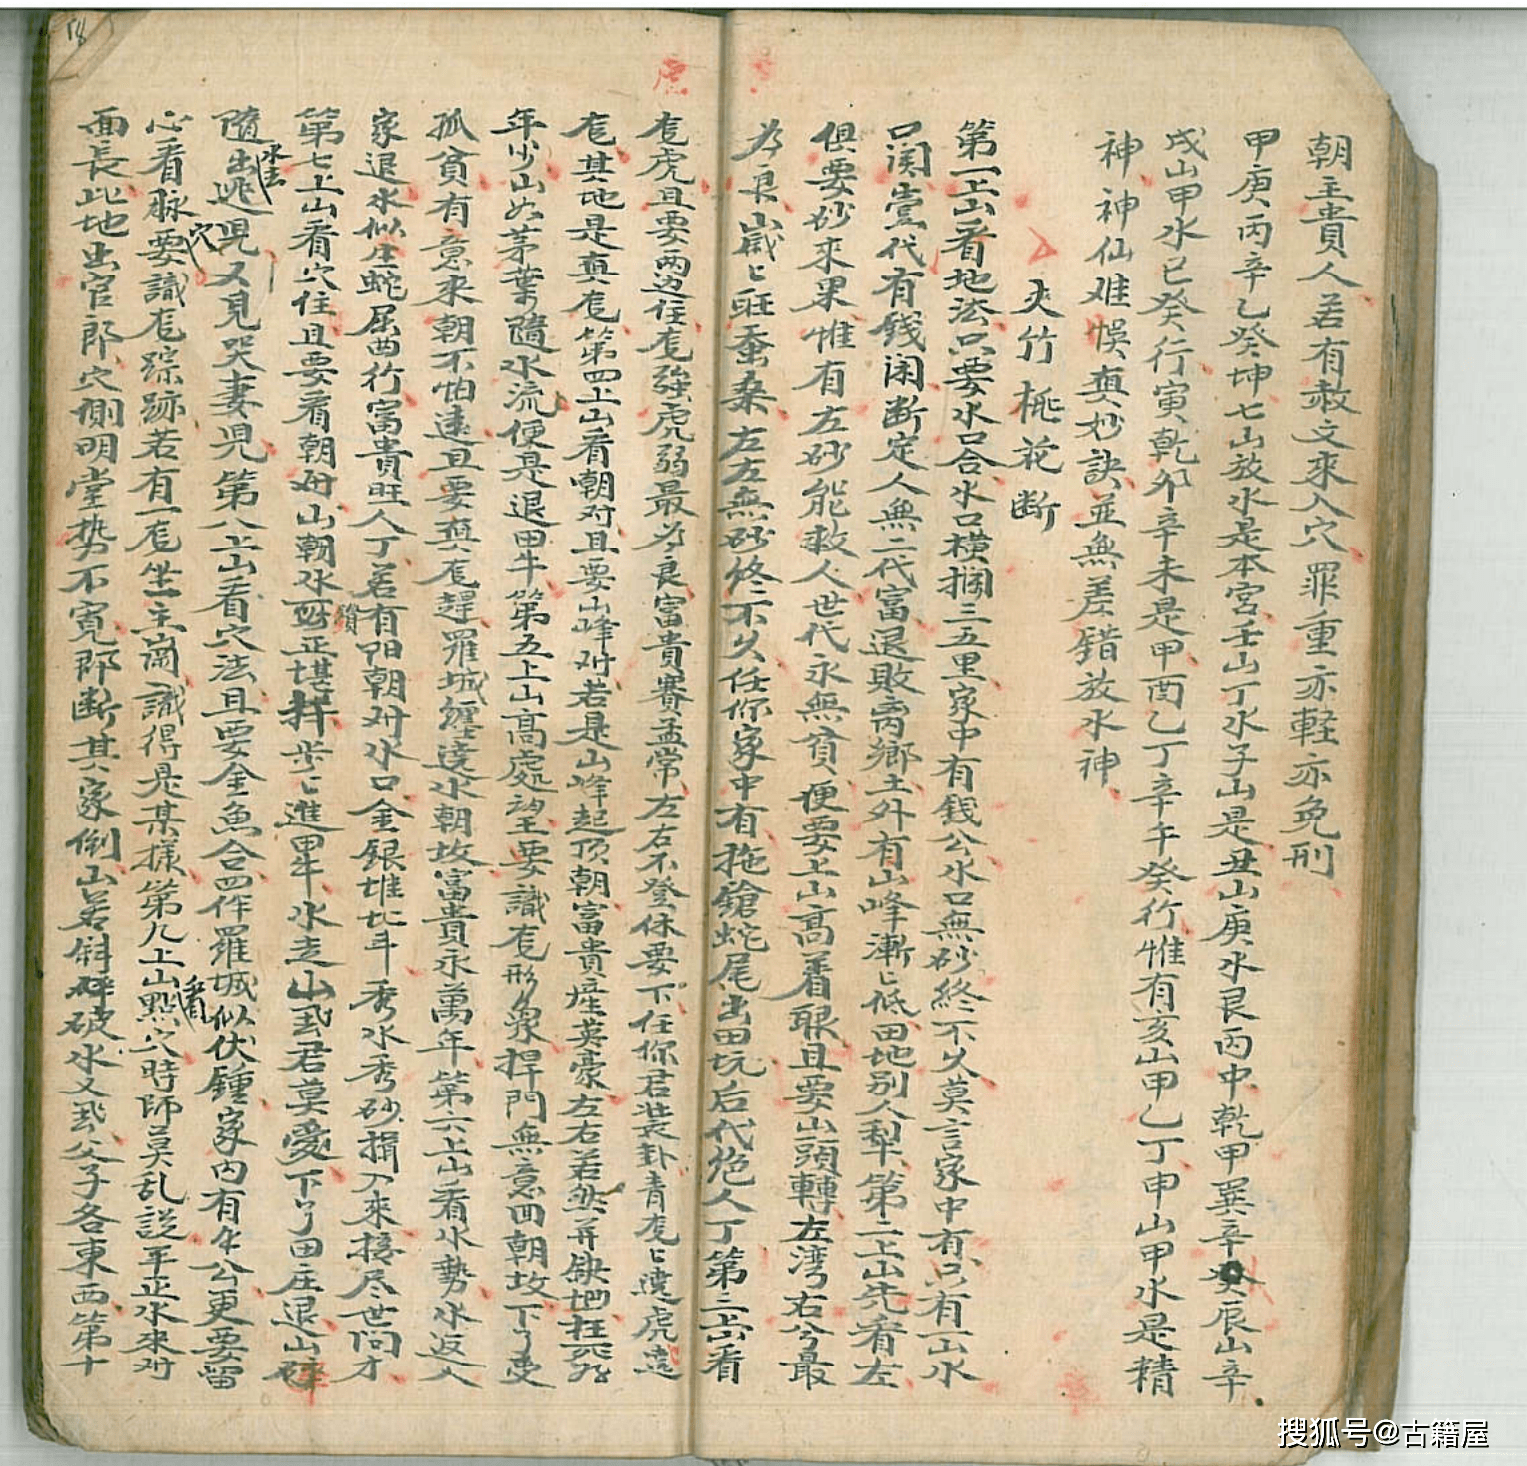 朝主貴人若有赦文來入穴罪重亦軽亦免刑
甲庚丙辛乙癸坤七山放水是本宮壬山丁水子山是丑山庚水艮丙中乾甲巽辛癸辰山辛
戌山甲水巳癸行寅乾卯辛未是甲酉乙丁辛午癸行惟有亥山甲乙丁申山甲水是精
神神仙难悮真妙訣並無差錯放水神
夾竹桃花断
第一上山看地法只要水口合水口横攔三五里家中有銭公水口無砂終不久莫言家中有只有一山水
口関壹代有銭闲断定人無二代富退敗离鄉土外有山峰漸匕低田地别人犁第二上山先看左
俱要砂來果惟有左砂能救人世代永無貧便要上山高着眼且要山頭轉左湾右兮最
为良歳匕旺蚕桑左左無砂终不久任你家中有拖鎗蛇尾出田坑后代绝人丁第三上山看
龙虎且要两边住龙強虎弱最为良富貴賽孟常左右不登休要下任你君装卦青龙匕遶虎遠
龙其地是真龙第四上山看朝对且要山峰对若是山峰起顶朝富貴産英豪左右若然并缺地枉死
年少山如茅葉隨水流便是退田牛第五上山高處望要識龙形象捍門無意回朝故下了受
孤貧有意來朝不怕遠且要真龙趕羅城纏遶水朝坟富貴永萬年第六上山看水勢水返入
家退水似生蛇屈曲行富貴旺人丁若有阳朝对水口金銀堆北斗秀水秀砂揖入來接尽世间才
第七上山看穴住且要看朝对山朝水對正堪扦步匕進田牛水走山飛君莫愛下了田庄退山碎
隨水走出逃児又見哭妻児第八上山看穴法且要金魚合四伴羅城似伏鍾家内有年公更要留
心看脉要識龙踪跡若有一龙坐主崗識得是某樣第九上山點穴時師莫乱説平正水來对
面長此地出官郎穴側明堂势不寬郎断其家倒山若斜碎破水又飛父子各東西第十
18
搜狐号@古籍屋